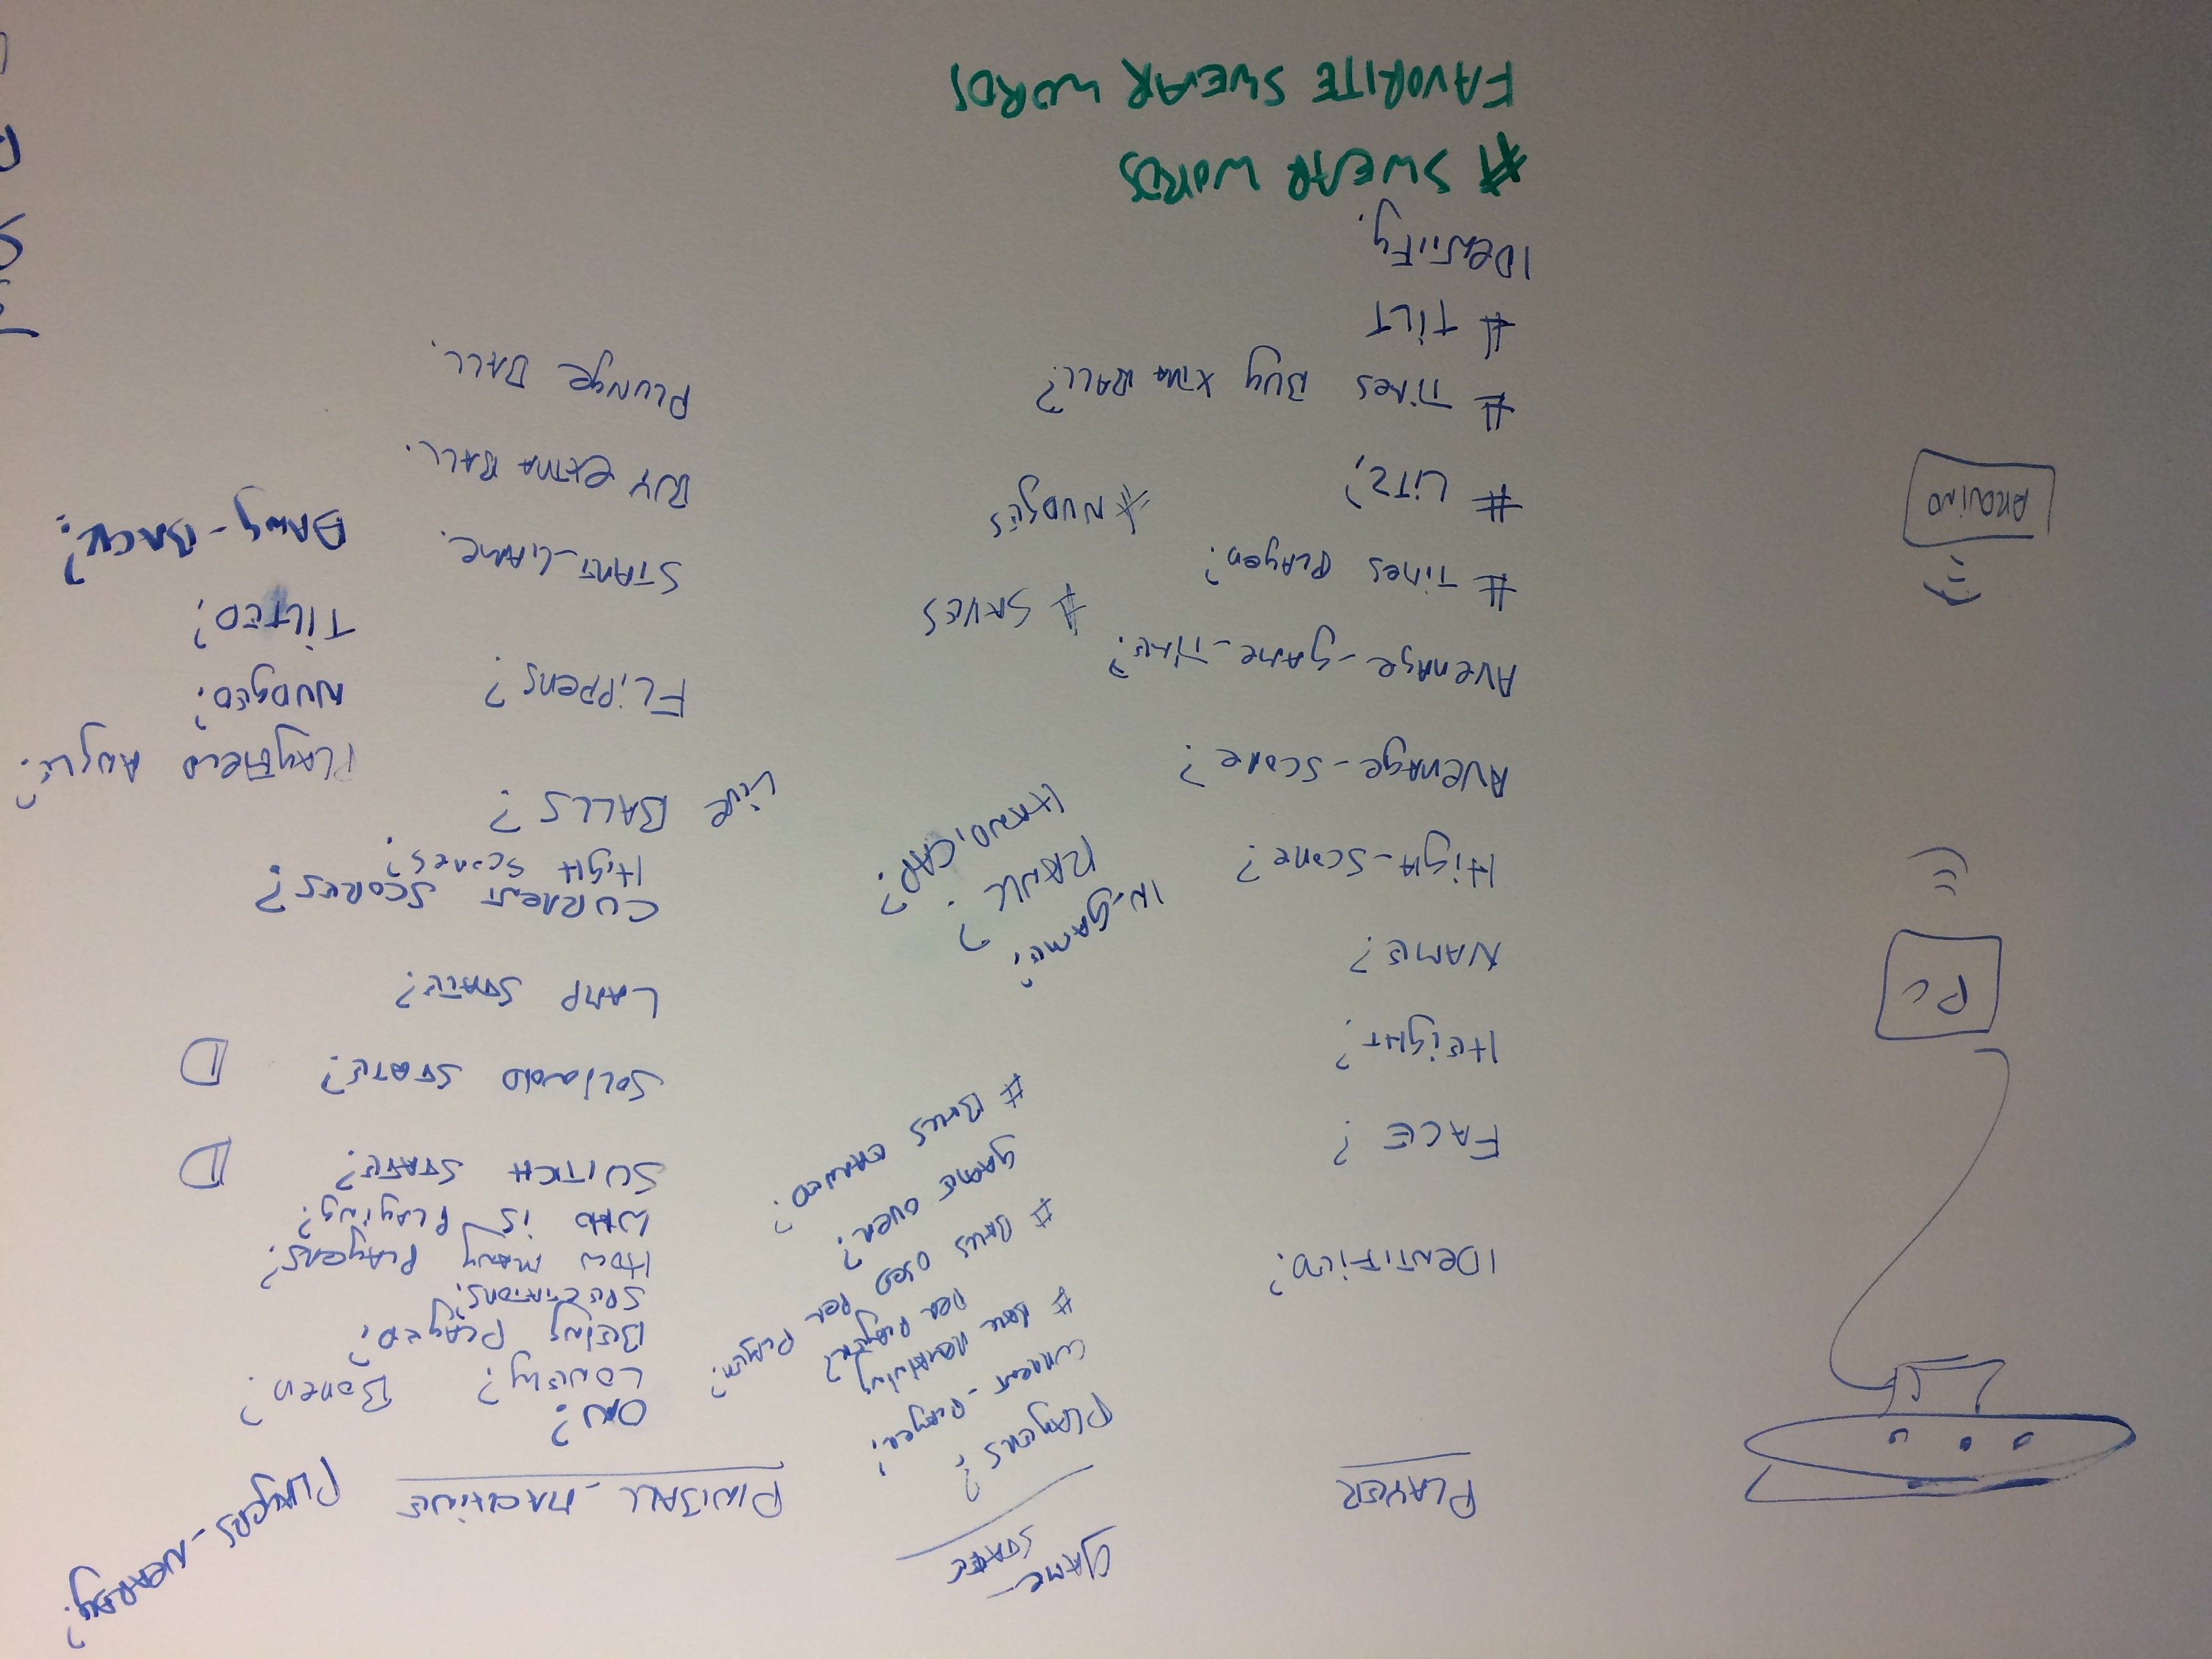 PC
ARDUINO
PLAYER
IDENTIFIED?
FACE?
HEIGHT?
NAME?
HIGH_SCORE?
AVERAGE_SCORE?
AVERAGE_GAME_TIME?
# TIMES PLAYED?
# LITZ?
# TIMES BUY XTRA BALL?
# TILT
IDENTIFY.
# SWEAR WORDS
FAVORITE SWEAR WORDS
IN_GAME?
RANK?
HANDICAP?
# SAVES
# NUDGES
GAME_
STATE
PLAYERS?
CURRENT_PLAYER?
# BALL REMAINING
PER PLAYER?
# BALLS USED PER PLAYER?
GAME OVER?
# BALLS EARNED?
PINBALL_MACHINE
ON?
LONELY? BORED?
BEING PLAYED?
SPECTATORS?
HOW MANY PLAYERS?
WHO IS PLAYING?
SWITCH STATE? D
SOLINOID STATE? D
LAMP STATE?
CURRENT SCORES?
HIGH SCORES?
LIVE BALLS?
FLIPPERS?
START_GAME.
BUY EXTRA BALL.
PLUNGE BALL.
PLAYERS_NEARBY?
PLAYFIELD ANGLE?
NUDGED?
TILTED?
DANG-BACK?